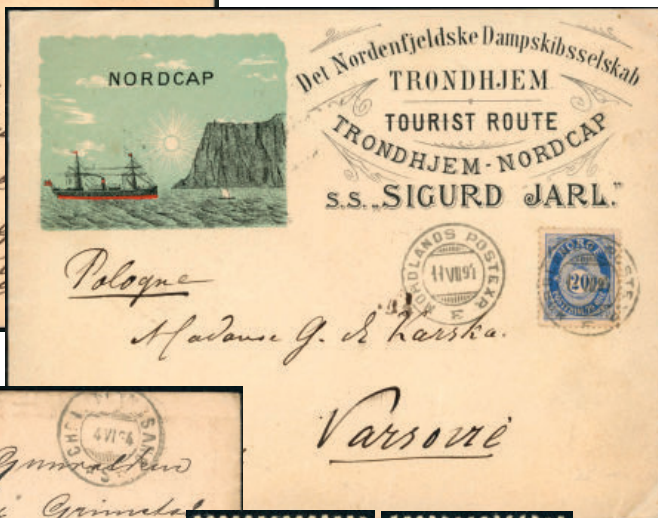 NORDCAP
Det Nordenfjeldske Dampskibsselskab
TRONDHJEM
TOURIST ROUTE
TRONDHJEM-NORDCAP
S.S. „SIGURD JARL."
NORDLANDS POSTEXP.
E
NORGE
20
Pologne
Madame G. de Karska.
Varsovie
4 VI 94
i